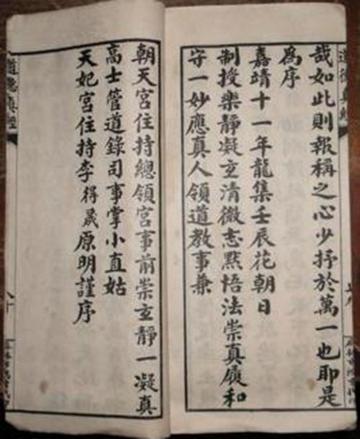 道德真經
哉如此則報稱之心少抒於萬一也即是
為序
嘉靖十一年龍集壬辰花朝日
制授樂靜凝玄清微志默悟法崇真履和
守一妙應真人領道教事兼
朝天宮住持總領宮事前崇玄靜一凝真
高士管道錄司事掌小直姑
天妃宮住持李得晟原明謹序
道德真經